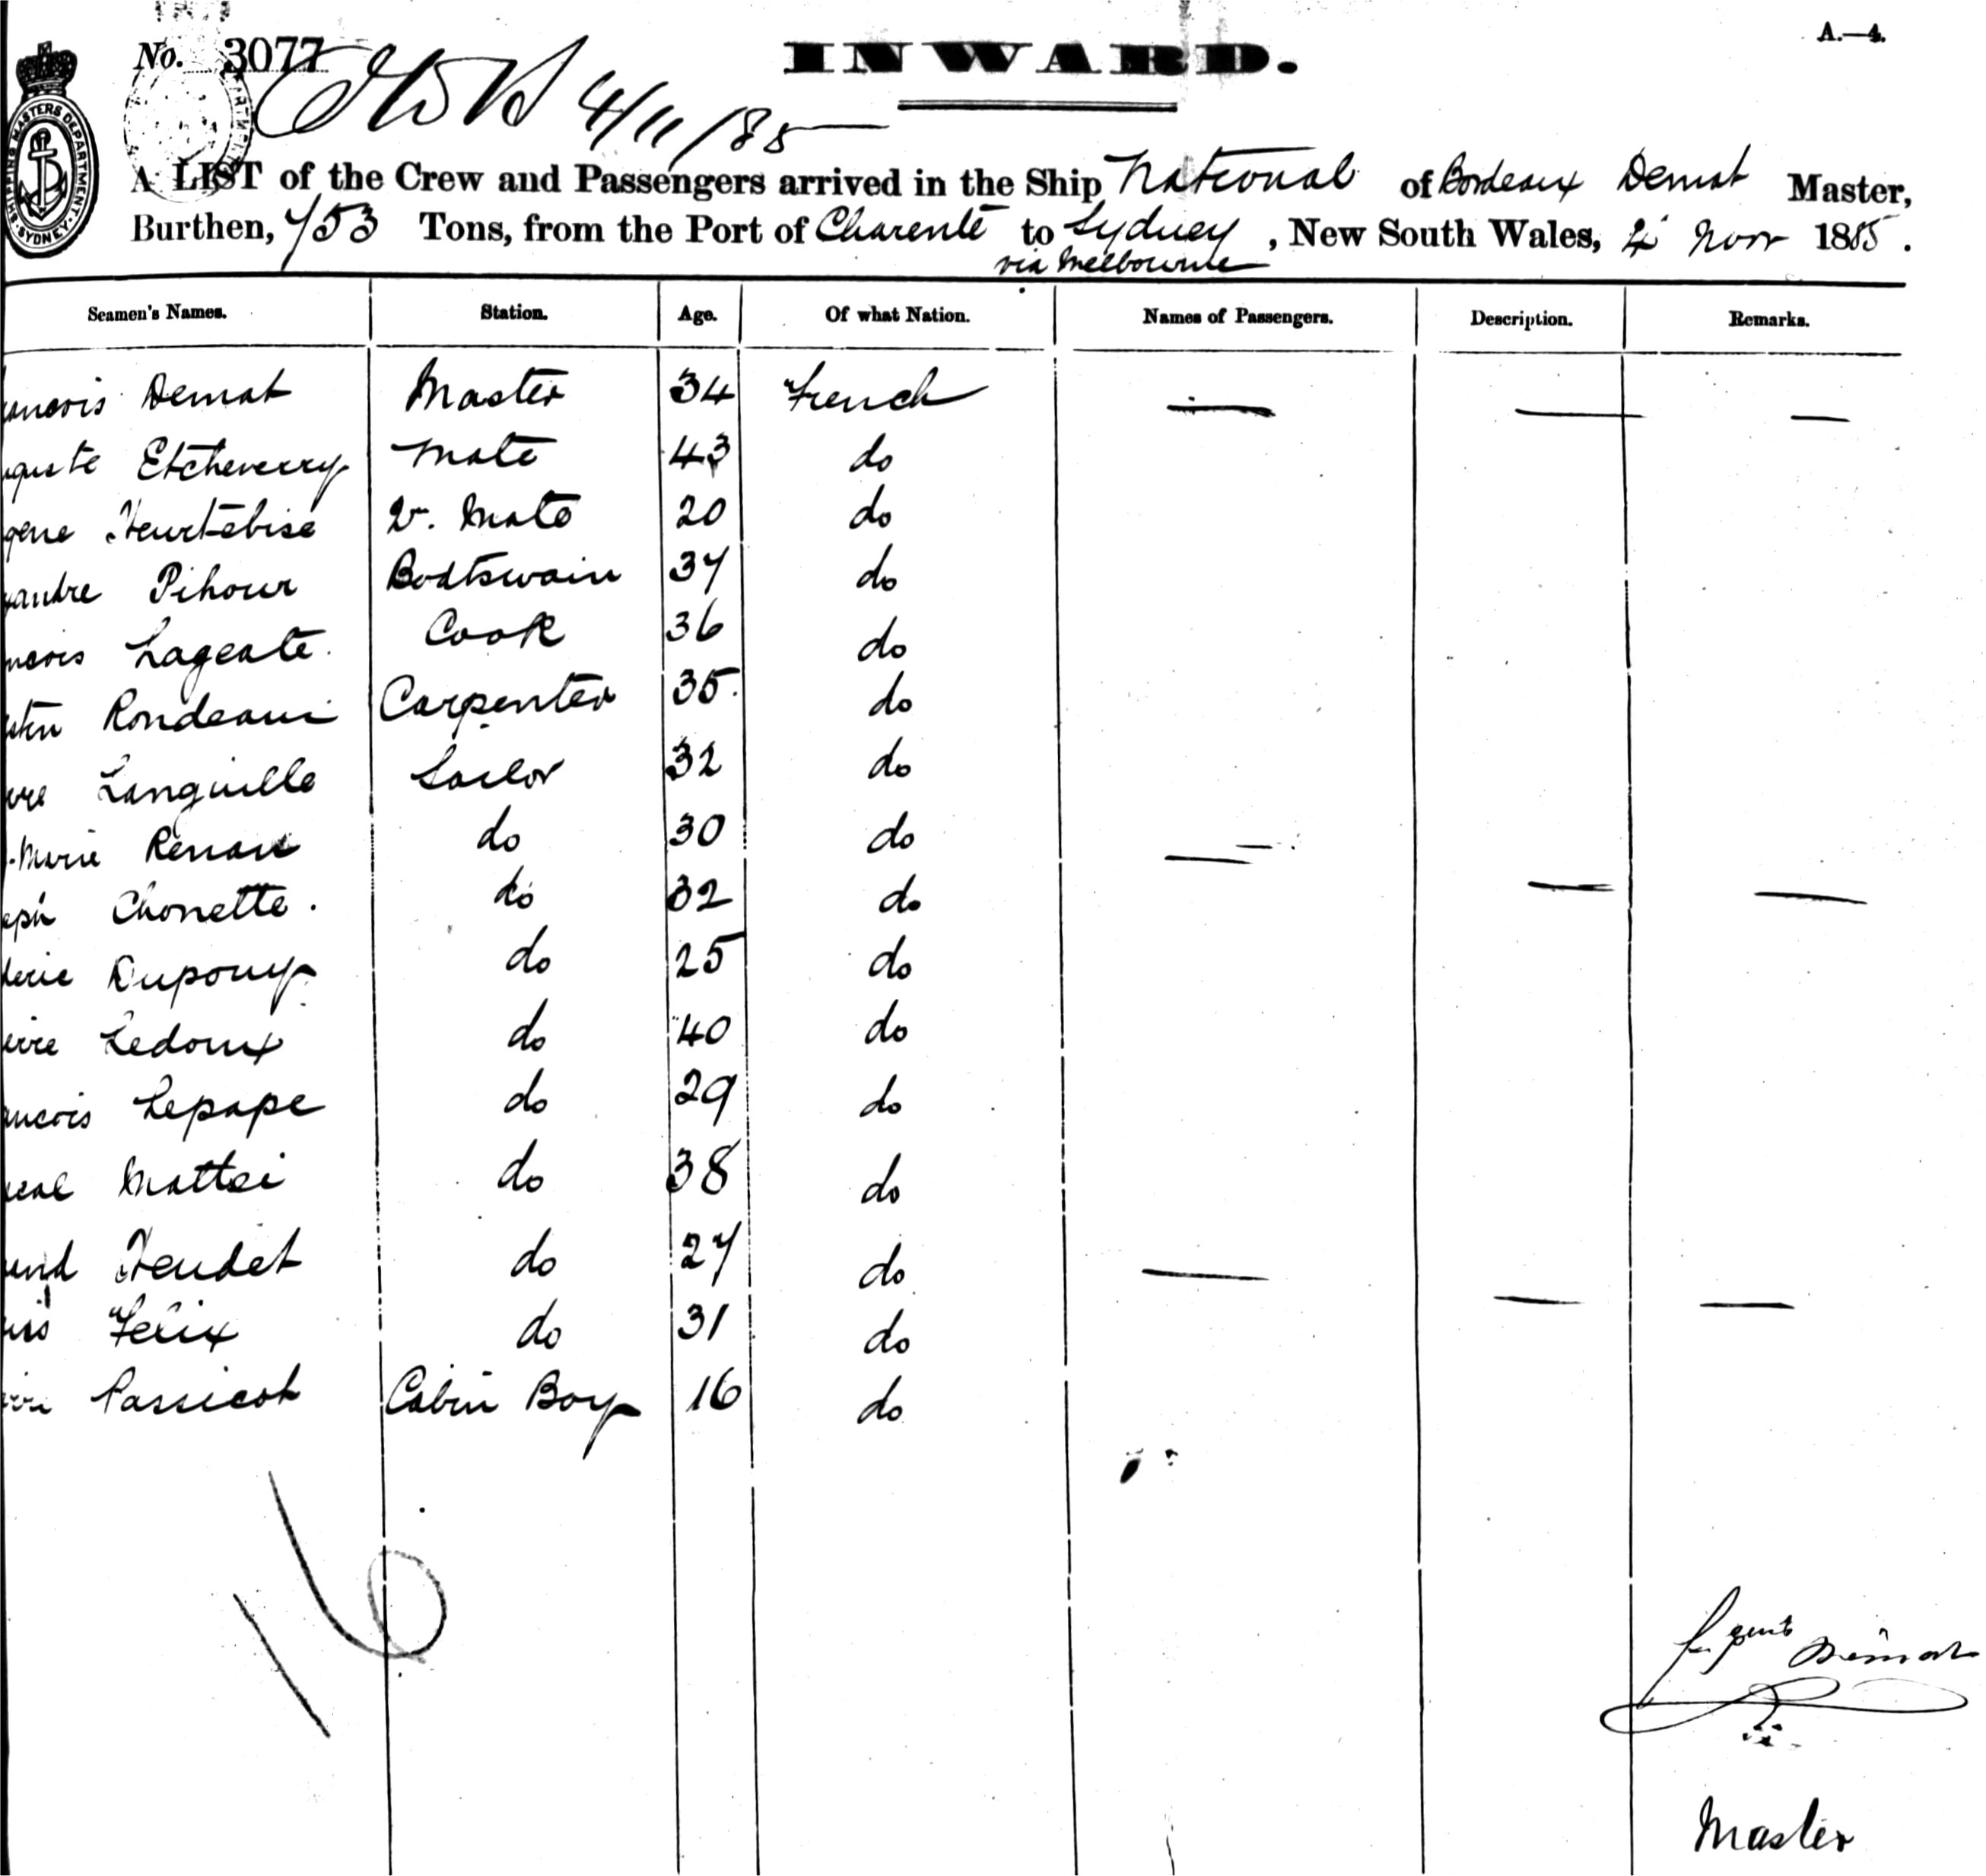 A.—4.
No. 3077
INWARD.
4/11/85
SHIPPING MASTERS DEPARTMENT SYDNEY
A LIST of the Crew and Passengers arrived in the Ship National of Bordeaux Demat Master,
Burthen, 753 Tons, from the Port of Charente to Sydney, New South Wales, Novr 1885.
via Melbourne
Seamen's Names. Station. Age. Of what Nation. Names of Passengers. Description. Remarks.
ancois Demat Master 34 French — — —
guste Etcheverry Mate 43 do
gene Heurtebise 2nd. Mate 20 do
xandre Pihour Boatswain 37 do
ncois Lageate. Cook 36 do
Rondeaui Carpenter 35. do
Languille Sailor 32 do
Marie Renan do 30 do —
eph Chonette. do 32 do — —
deric Dupouy do 25 do
erre Ledoux do 40 do
ancois Lepape do 29 do
Mattei do 38 do
Heudet do 27 do — — —
Felix do 31 do
Passicot Cabin Boy 16 do
16
Demat
Master